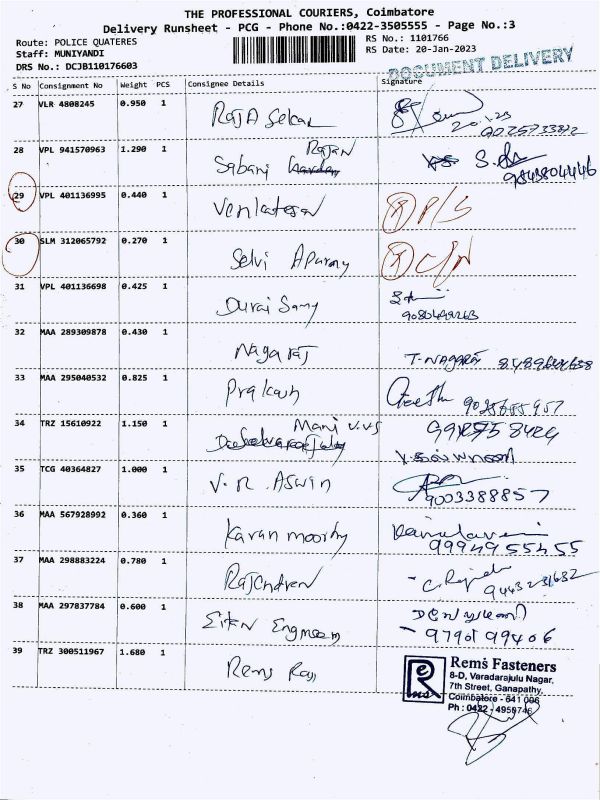 THE PROFESSIONAL COURIERS, Coimbatore
Delivery Runsheet - PCG - Phone No.:0422-3505555 - Page No.:3
Route: POLICE QUATERES
Staff: MUNIYANDI
DRS No.: DCJB110176603
RS No.: 1101766
RS Date: 20-Jan-2023
DOCUMENT DELIVERY
S No Consignment No Weight PCS Consignee Details Signature
27 VLR 4808245 0.950 1 Raja Sekar
20.1.23
28 VPL 941570963 1.290 1 Sabari Rajan
9843804446
29 VPL 401136995 0.440 1 Venkatesan P/S
30 SLM 312065792 0.270 1 Selvi C/N
31 VPL 401136698 0.425 1 Durai Samy
32 MAA 289309878 0.430 1 Nagaraj T. Nagaraj
33 MAA 295040532 0.825 1 Prakash Geetha
34 TRZ 15610922 1.150 1 Mani V.V.S
35 TCG 40364827 1.000 1 V. R. Aswin
9003388857
36 MAA 567928992 0.360 1 Karan moorthy
9994955455
37 MAA 298883224 0.780 1 Rajendren
38 MAA 297837784 0.600 1
9790199406
39 TRZ 300511967 1.680 1 Rems
Rem's Fasteners
8-D, Varadarajulu Nagar,
7th Street, Ganapathy,
Coimbatore - 641 006
Ph : 0422 - 4950746